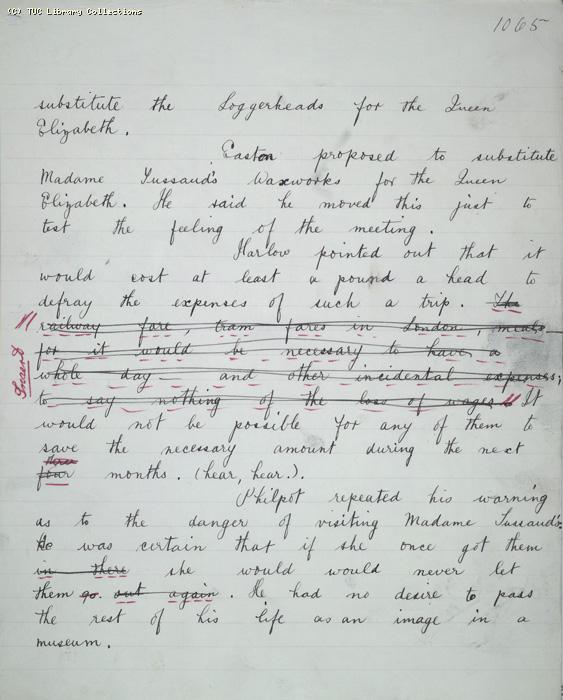 (C) TUC Library Collections
1065
substitute the Loggerheads for the Queen
Elizabeth.
Easton proposed to substitute
Madame Tussaud's Waxworks for the Queen
Elizabeth. He said he moved this just to
test the feeling of the meeting.
Harlow pointed out that it
would cost at least a pound a head to
defray the expenses of such a trip. The
railway fare, tram fares in London, meals
for it would be necessary to have a
whole day – and other incidental expenses;
to say nothing of the loss of wages. It
would not be possible for any of them to
save the necessary amount during the next
four months. (hear, hear.).
Philpot repeated his warning
as to the danger of visiting Madame Tussaud's.
He was certain that if she once got them
in there she would would never let
them go. out again. He had no desire to pass
the rest of his life as an image in a
museum.
Insert